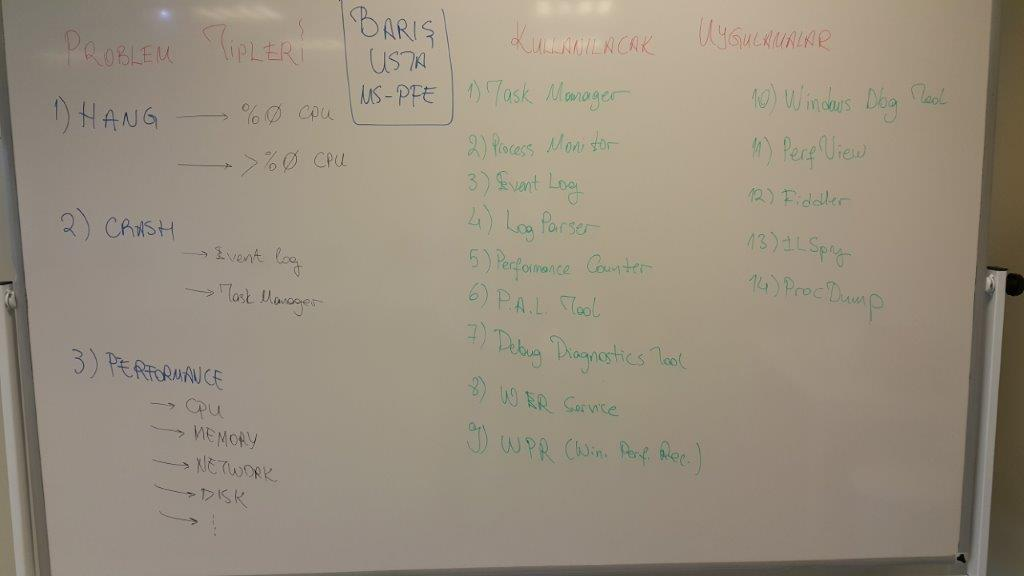 PROBLEM TİPLERİ
1) HANG → %Ø CPU
→ >%Ø CPU
2) CRASH
→ Event log
→ Task Manager
3) PERFORMANCE
→ CPU
→ MEMORY
→ NETWORK
→ DISK
→ ⋮
BARIŞ
USTA
MS-PFE
KULLANILACAK UYGULAMALAR
1) Task Manager
2) Process Monitor
3) Event Log
4) Log Parser
5) Performance Counter
6) P.A.L. Tool
7) Debug Diagnostics Tool
8) WER Service
9) WPR (Win. Perf. Rec.)
10) Windows Dbg Tool
11) PerfView
12) Fiddler
13) ILSpy
14) ProcDump